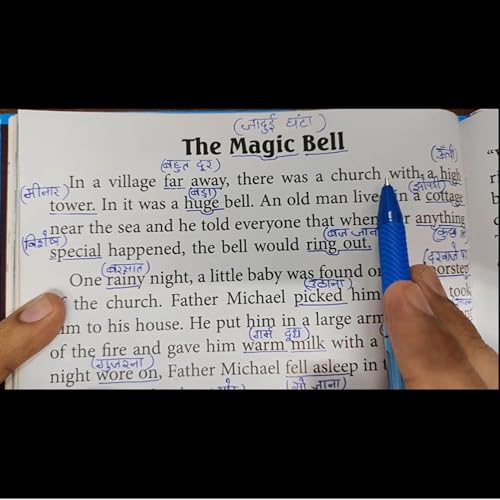 (जादुई घंटा)
The Magic Bell
(बहुत दूर) (ऊँची)
In a village far away, there was a church with a high
(मीनार) (बड़ा) (झोपड़ी)
tower. In it was a huge bell. An old man live in a cottage
near the sea and he told everyone that when er anything
(विशेष) (बज जाना) (कुछ
special happened, the bell would ring out.
(बरसात) (उठाना)
One rainy night, a little baby was found on orstep
f the church. Father Michael picked him took
im to his house. He put him in a large arm
(गर्म दूध)
of the fire and gave him warm milk with a
(गुजरना)
night wore on, Father Michael fell asleep in t
(सो जाना)